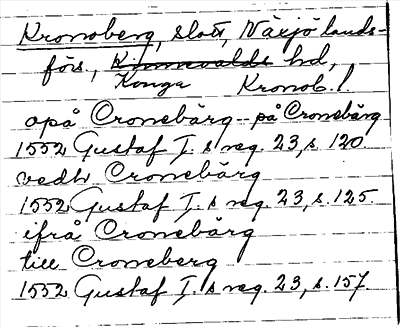 Kronoberg, slott, Växjö lands-
förs., Kinnevalds hd,
Konga Kronob. l.
apå Cronebärg -- på Cronebärg
1552 Gustaf I.s reg. 23, s. 120.
vedh Cronebärg
1552 Gustaf I.s reg. 23, s. 125.
ifrå Cronebärg
till Croneberg
1552 Gustaf I.s reg. 23, s. 157.